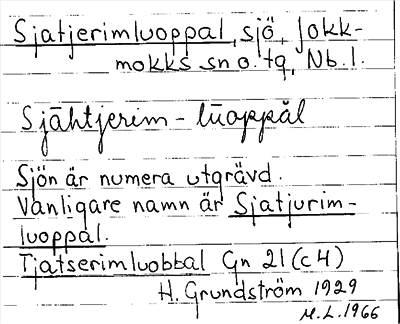 Sjatjerimluoppal, sjö, Jokk-
mokks sn o. tg, Nb. l.
Sjāhtjerim-lūoppăl
Sjön är numera utgrävd.
Vanligare namn är Sjatjurim-
luoppal.
Tjatserimluobbal Gn 21 (c4)
H. Grundström 1929
M.L. 1966